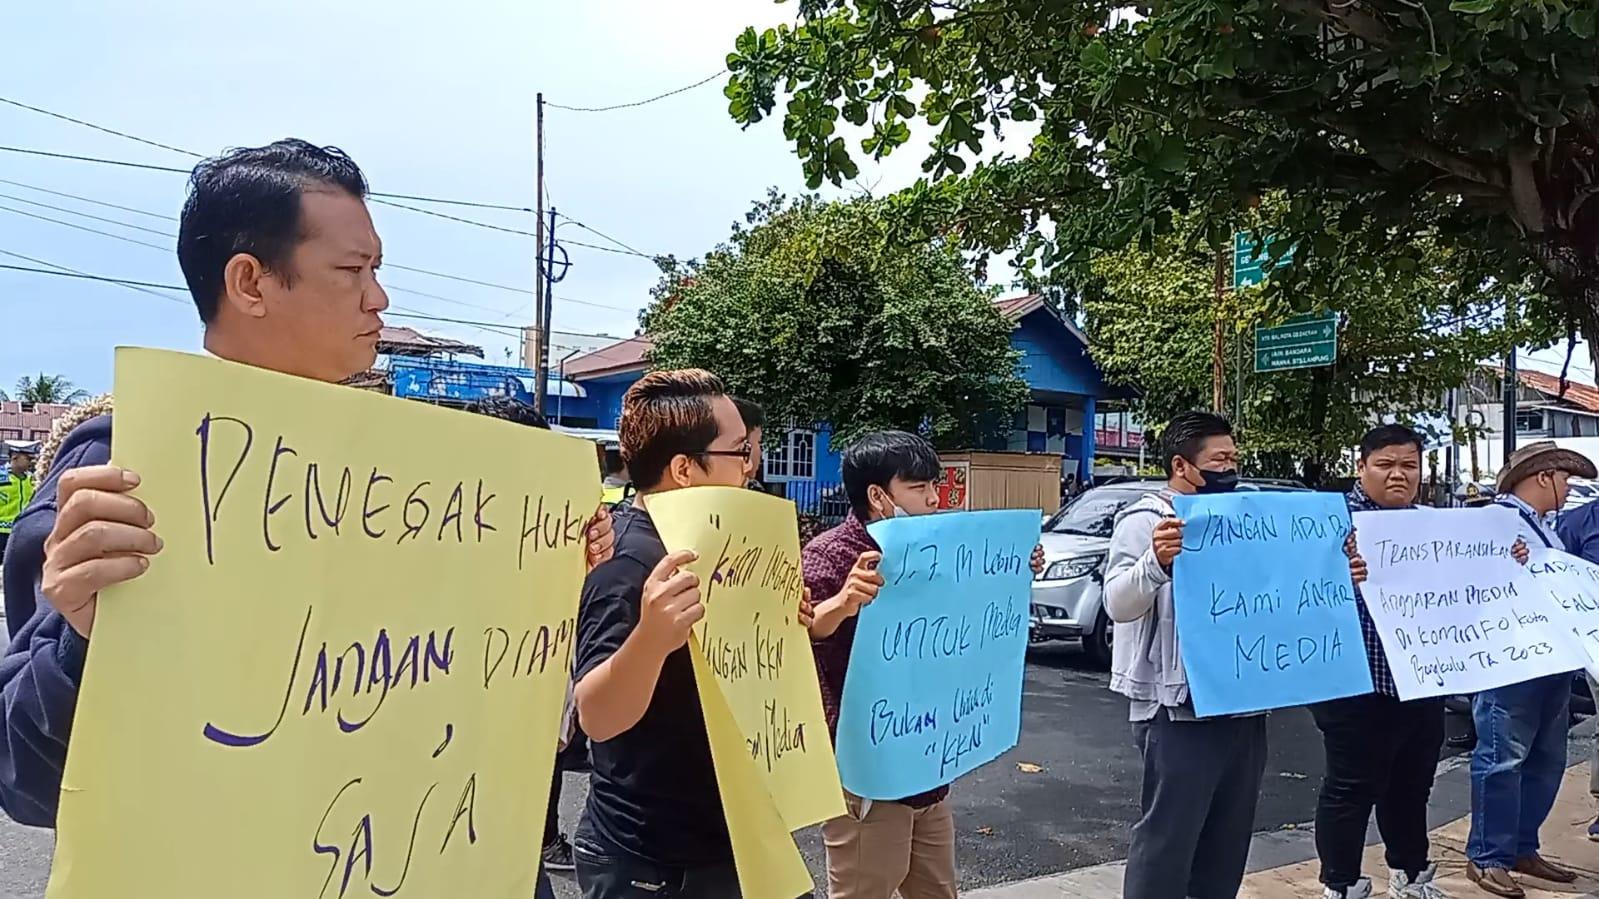 PENEGAK HUKU
JANGAN DIAM
SAJA
"KAMI INGATK
JANGAN KKN
Media
UNTUK MEDIA
BUKAN
"KKN"
JANGAN ADU
KAMI ANTAR
MEDIA
TRANSPARANSIKAN
ANGGARAN MEDIA
DI KOMINFO Kota
Bengkulu TA 2023
KADIS
KAL
IAIN BANDARA
MANNA BTS.LAMPUNG